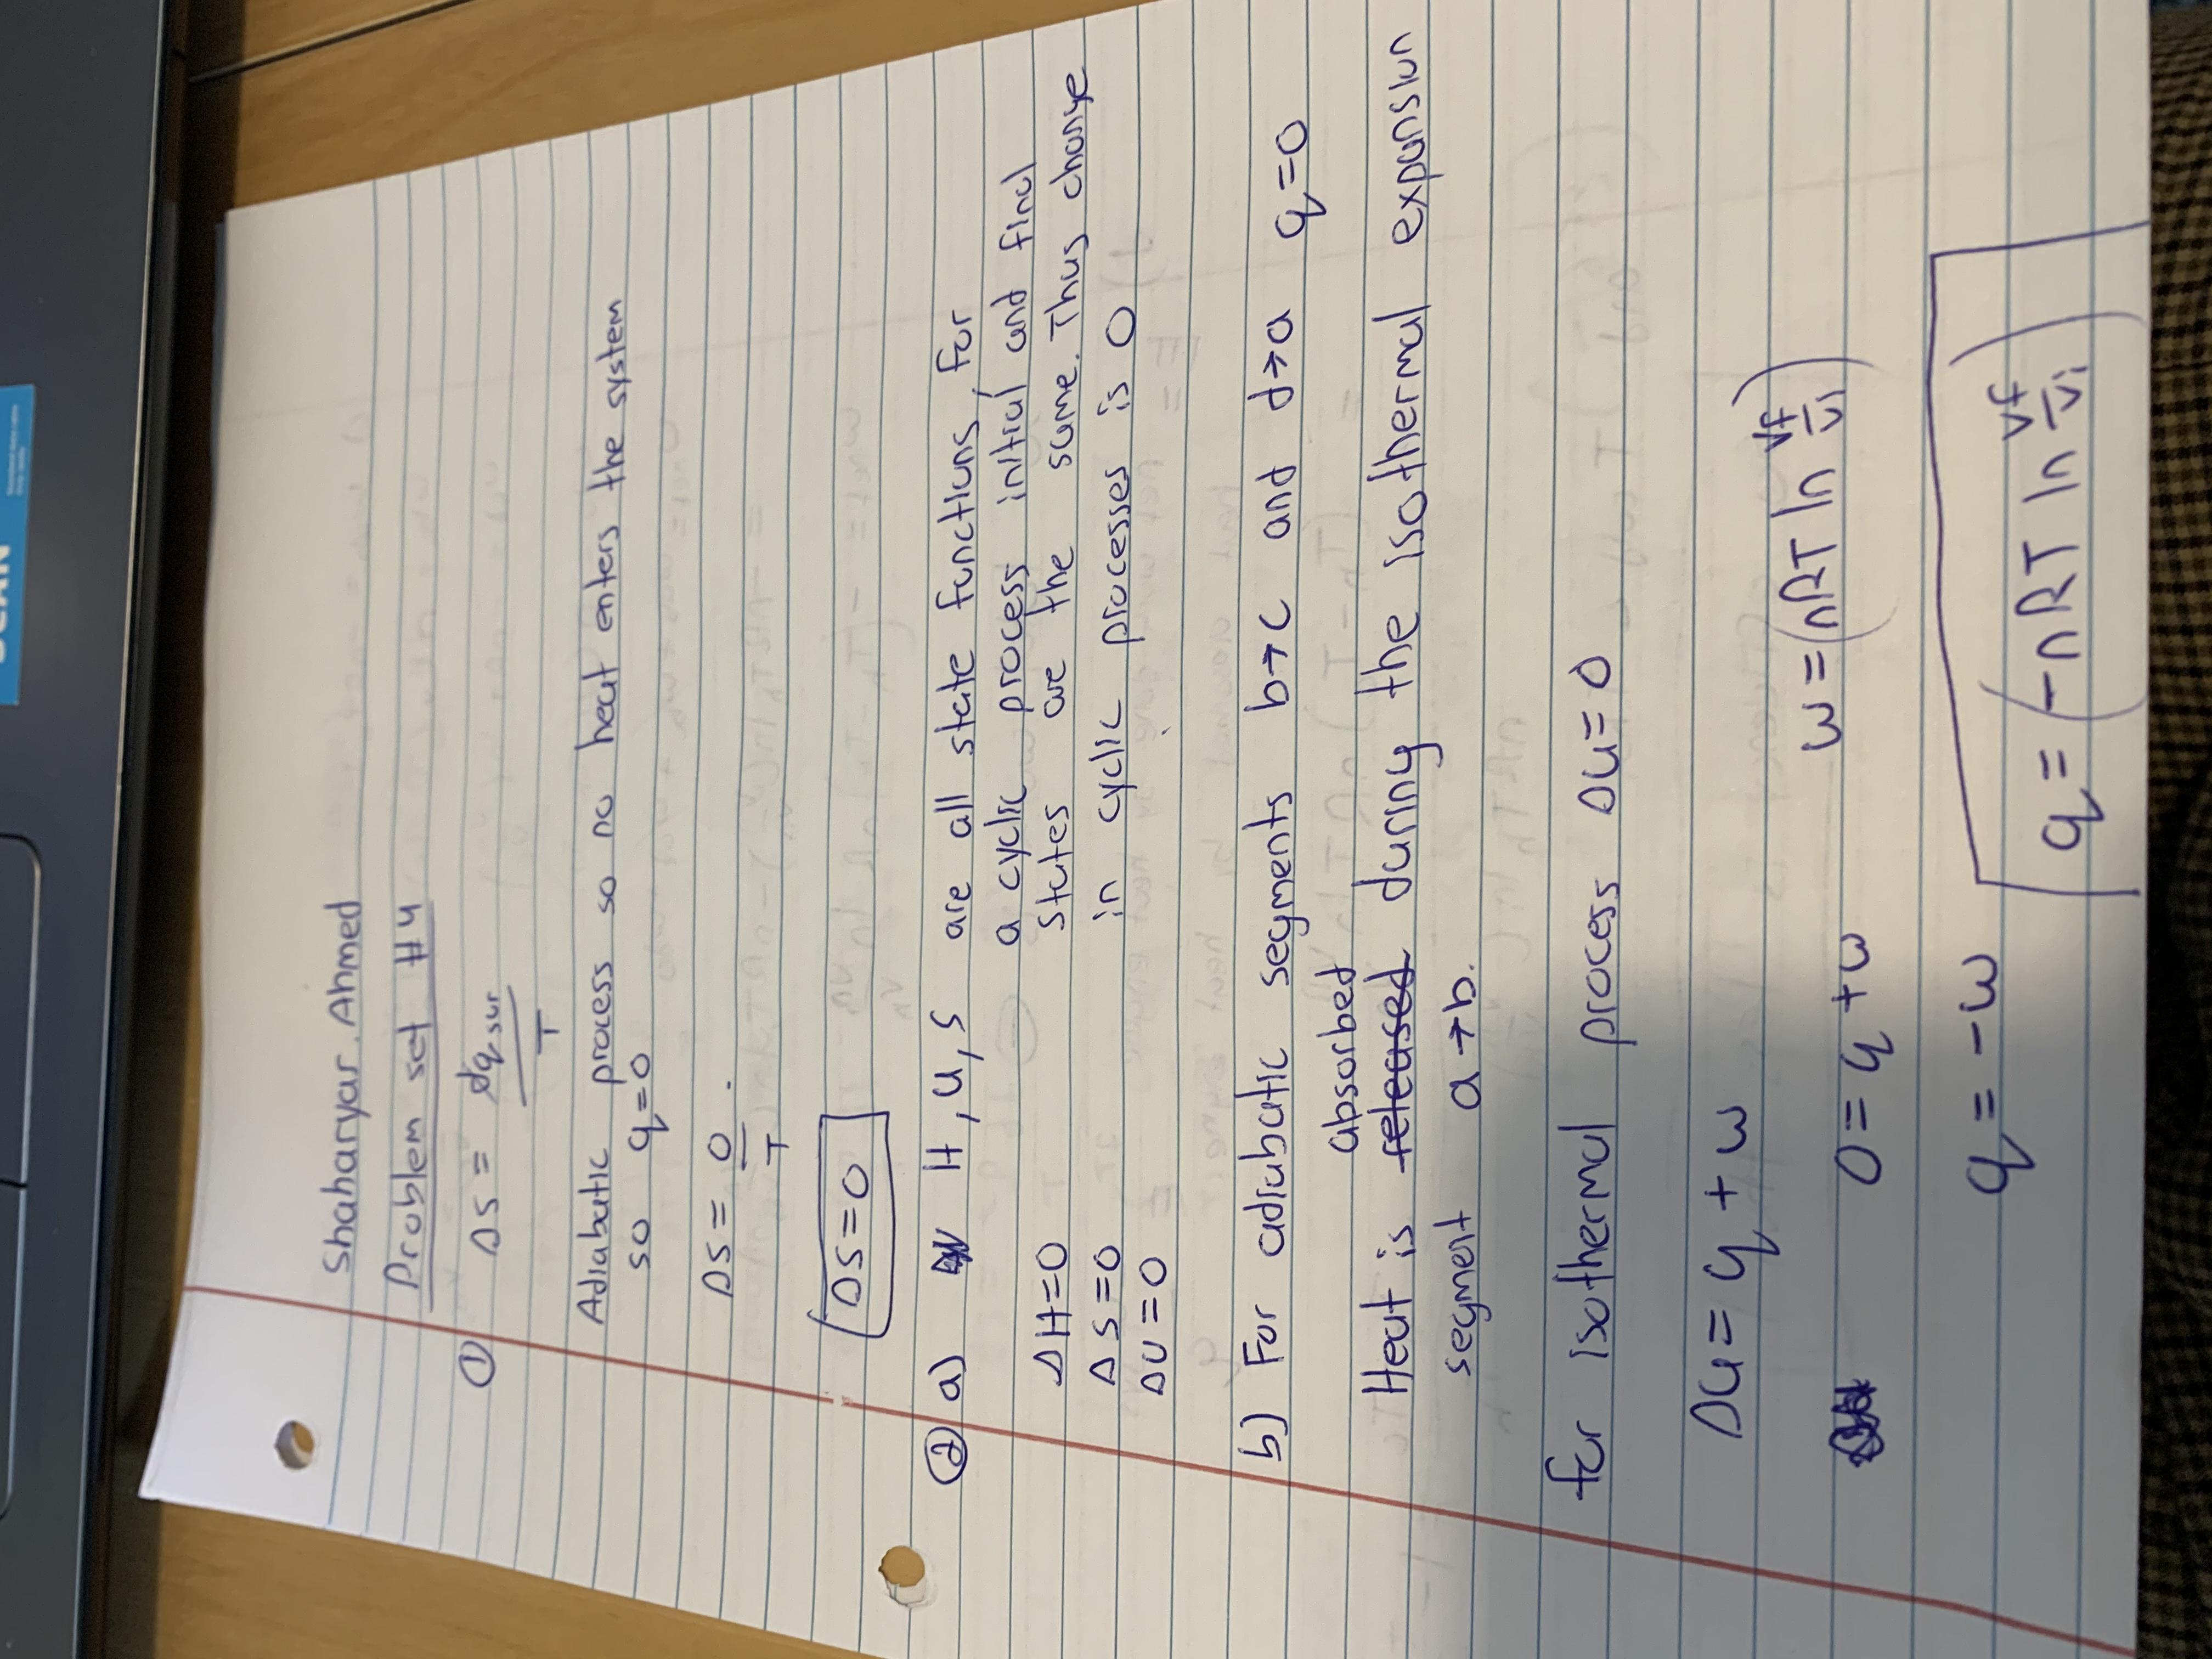 SCAN
Shaharyar Ahmed
Problem set #4
① ΔS = đq sur / T
Adiabatic process so no heat enters the system
so q=0
ΔS = 0 / T
ΔS=0
② a) H, U, S are all state functions, for
a cyclic process initial and final
ΔH=0 states are the same. Thus change
ΔS=0 in cyclic processes is 0
ΔU=0
b) For adiabatic segments b→c and d→a q=0
absorbed
Heat is released during the isothermal expansion
segment a→b.
for isothermal process ΔU=0
ΔU= q + w
w = (nRT ln Vf/Vi)
0= q +w
q = -w
q = (-nRT ln Vf/Vi)